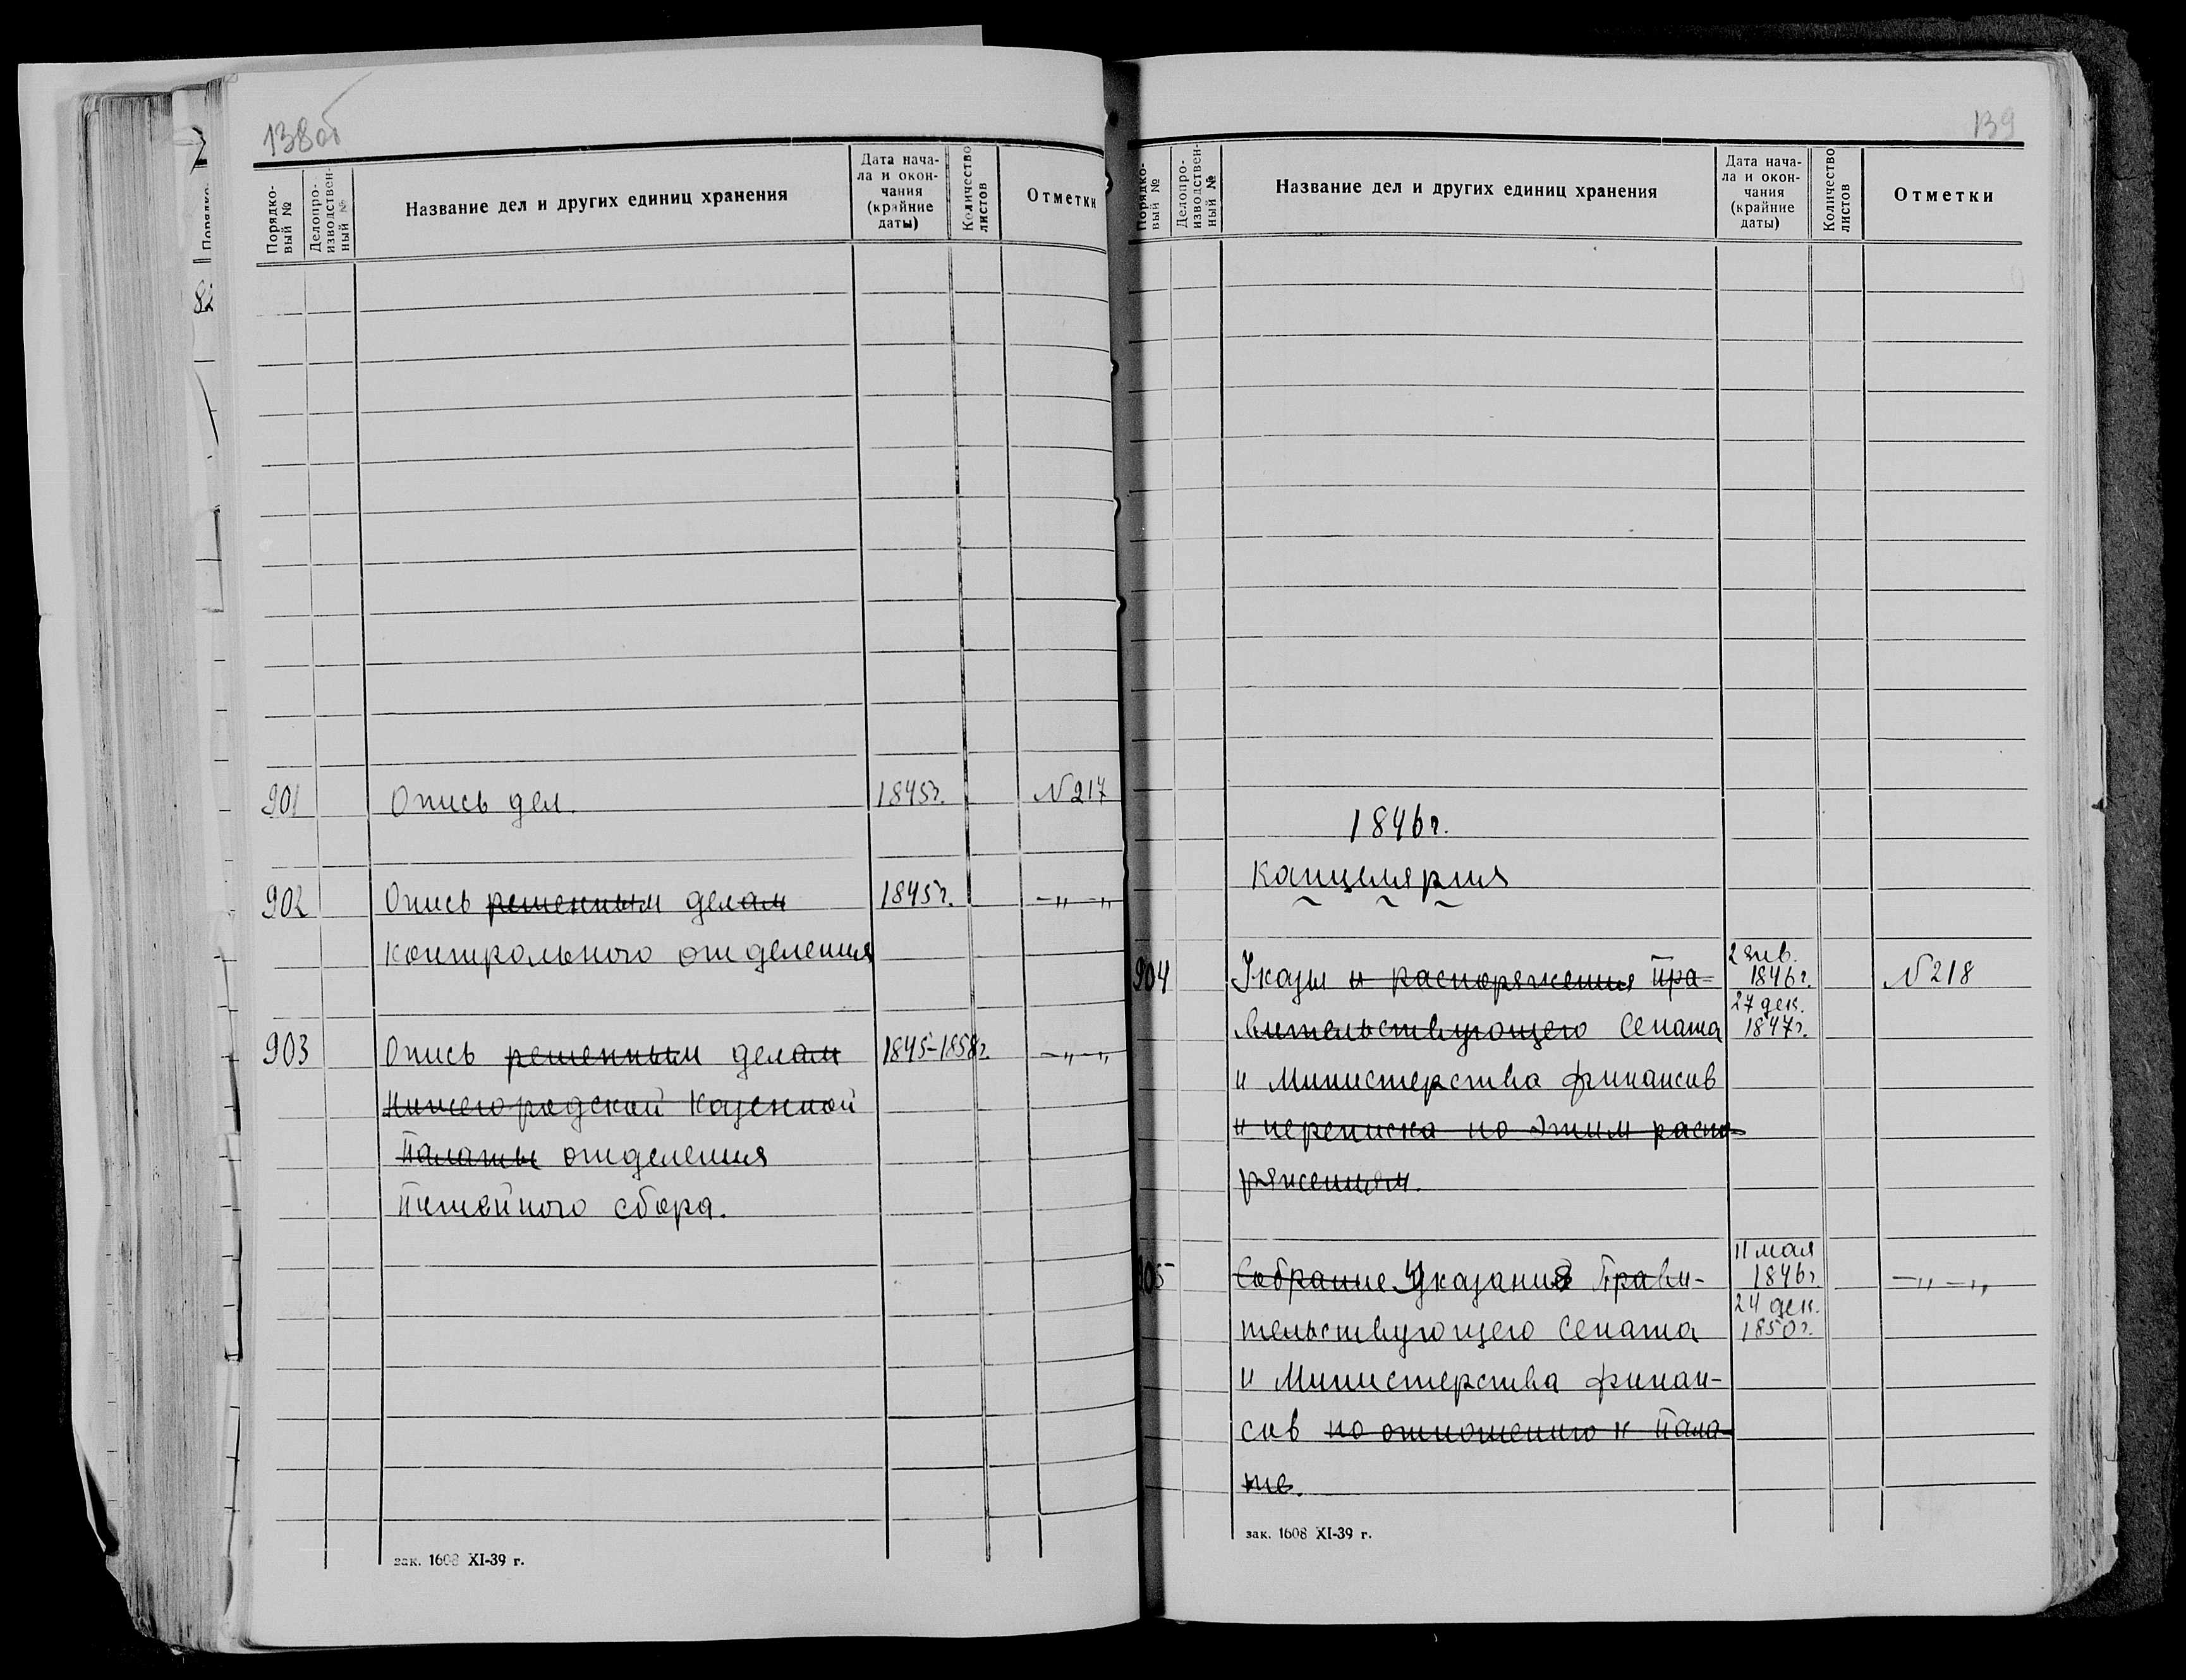 138об
Порядко-
вый №
Делопро-
изводствен-
ный №
Название дел и других единиц хранения
Дата нача-
ла и окон-
чания
(крайние
даты)
Количество
листов
Отметки
901 Опись дел. 1845г. №217
902 Опись решенным делам 1845г. —„—„
контрольного отделения
903 Опись решенным делам 1845-1858г. —„—„
Нижегородской Казенной
Палаты отделения
Питейного сбора.
зак. 1608 XI-39 г.
139
Порядко-
вый №
Делопро-
изводствен-
ный №
Название дел и других единиц хранения
Дата нача-
ла и окон-
чания
(крайние
даты)
Количество
листов
Отметки
1846г.
Канцелярия
2 янв.
904 Указы и распоряжения Пра- 1846г. №218
27 дек.
вительствующего Сената 1847г.
и Министерства финансов
и переписка по этим распо-
ряжениям.
11 мая
905 Собрание Указаний Прави- 1846г. —„—„
24 дек.
тельствующего Сената 1850г.
и Министерства финан-
сов по отношению к Пала-
те.
зак. 1608 XI-39 г.